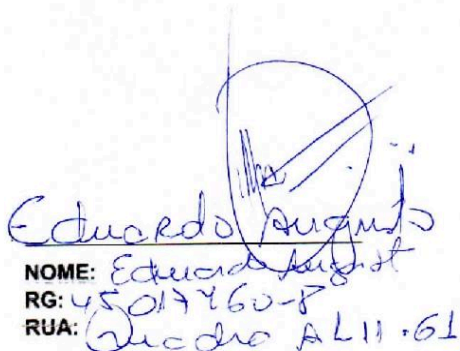 Eduardo Augusto
NOME: Eduardo August
RG: 45017760-8
RUA: Quadra AL11.61